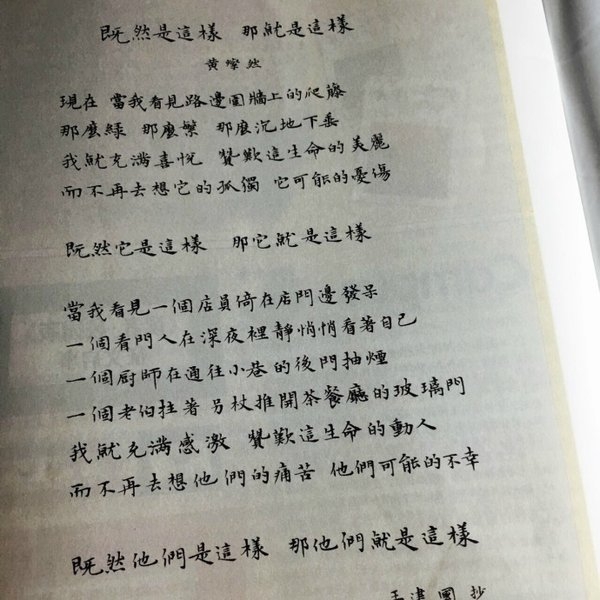 既然是這樣 那就是這樣
黄燦然
現在 當我看見路邊圍牆上的爬藤
那麼綠 那麼繁 那麼沉地下垂
我就充滿喜悅 贊歎這生命的美麗
而不再去想它的孤獨 它可能的憂傷
既然它是這樣 那它就是這樣
當我看見一個店員倚在店門邊發呆
一個看門人在深夜裡靜悄悄看著自己
一個厨師在通往小巷的後門抽煙
一個老伯拄著另杖推開茶餐廳的玻璃門
我就充滿感激 贊歎這生命的動人
而不再去想他們的痛苦 他們可能的不幸
既然他們是這樣 那他們就是這樣
國抄